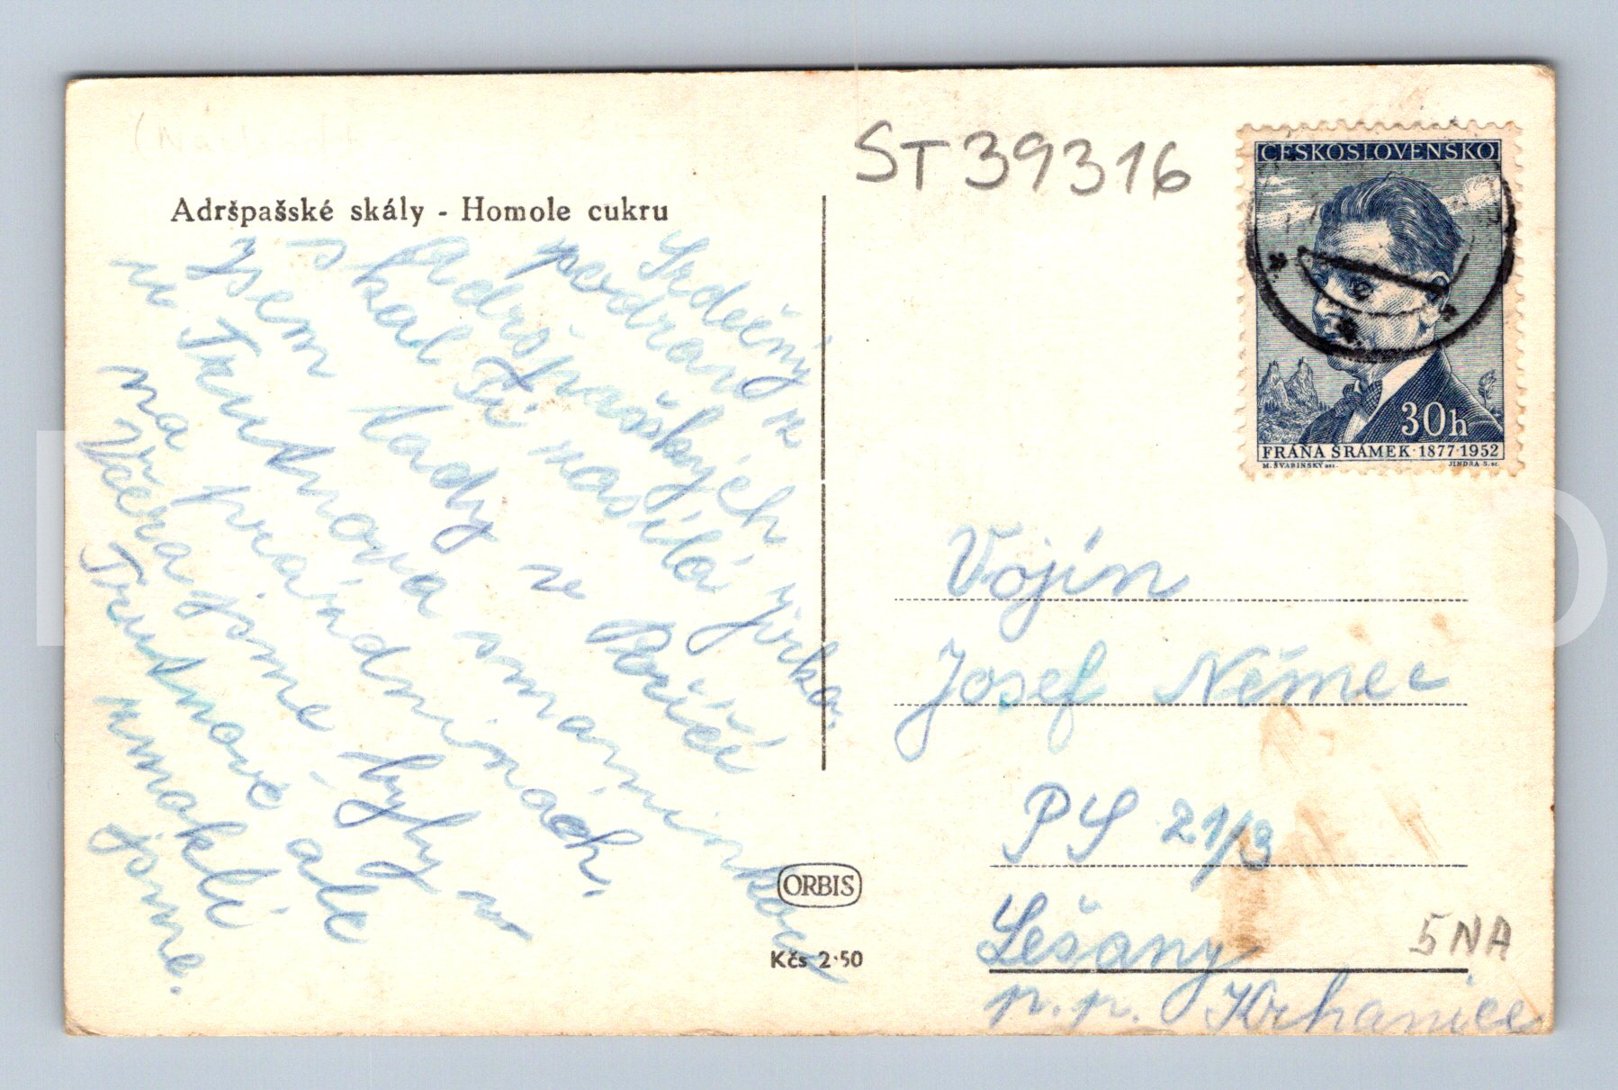 Adršpašské skály - Homole cukru
ST 39316
ČESKOSLOVENSKO
30h
FRÁŇA ŠRÁMEK · 1877-1952
M. ŠVABINSKÝ JINDRA S. sc.
Srdečný
pozdrav z
Adršpašských
skal Ti zasílá Jirka.
Jsem tady ze Poříčí
u Trutnova s maminkou
na prázdninách.
Včera jsme byly v
Trutnově ale
zmokli
jsme.
Vojín
Josef Němec
PS 21/3
Lešany
p.p. Krhanice
5NA
ORBIS
Kčs 2·50